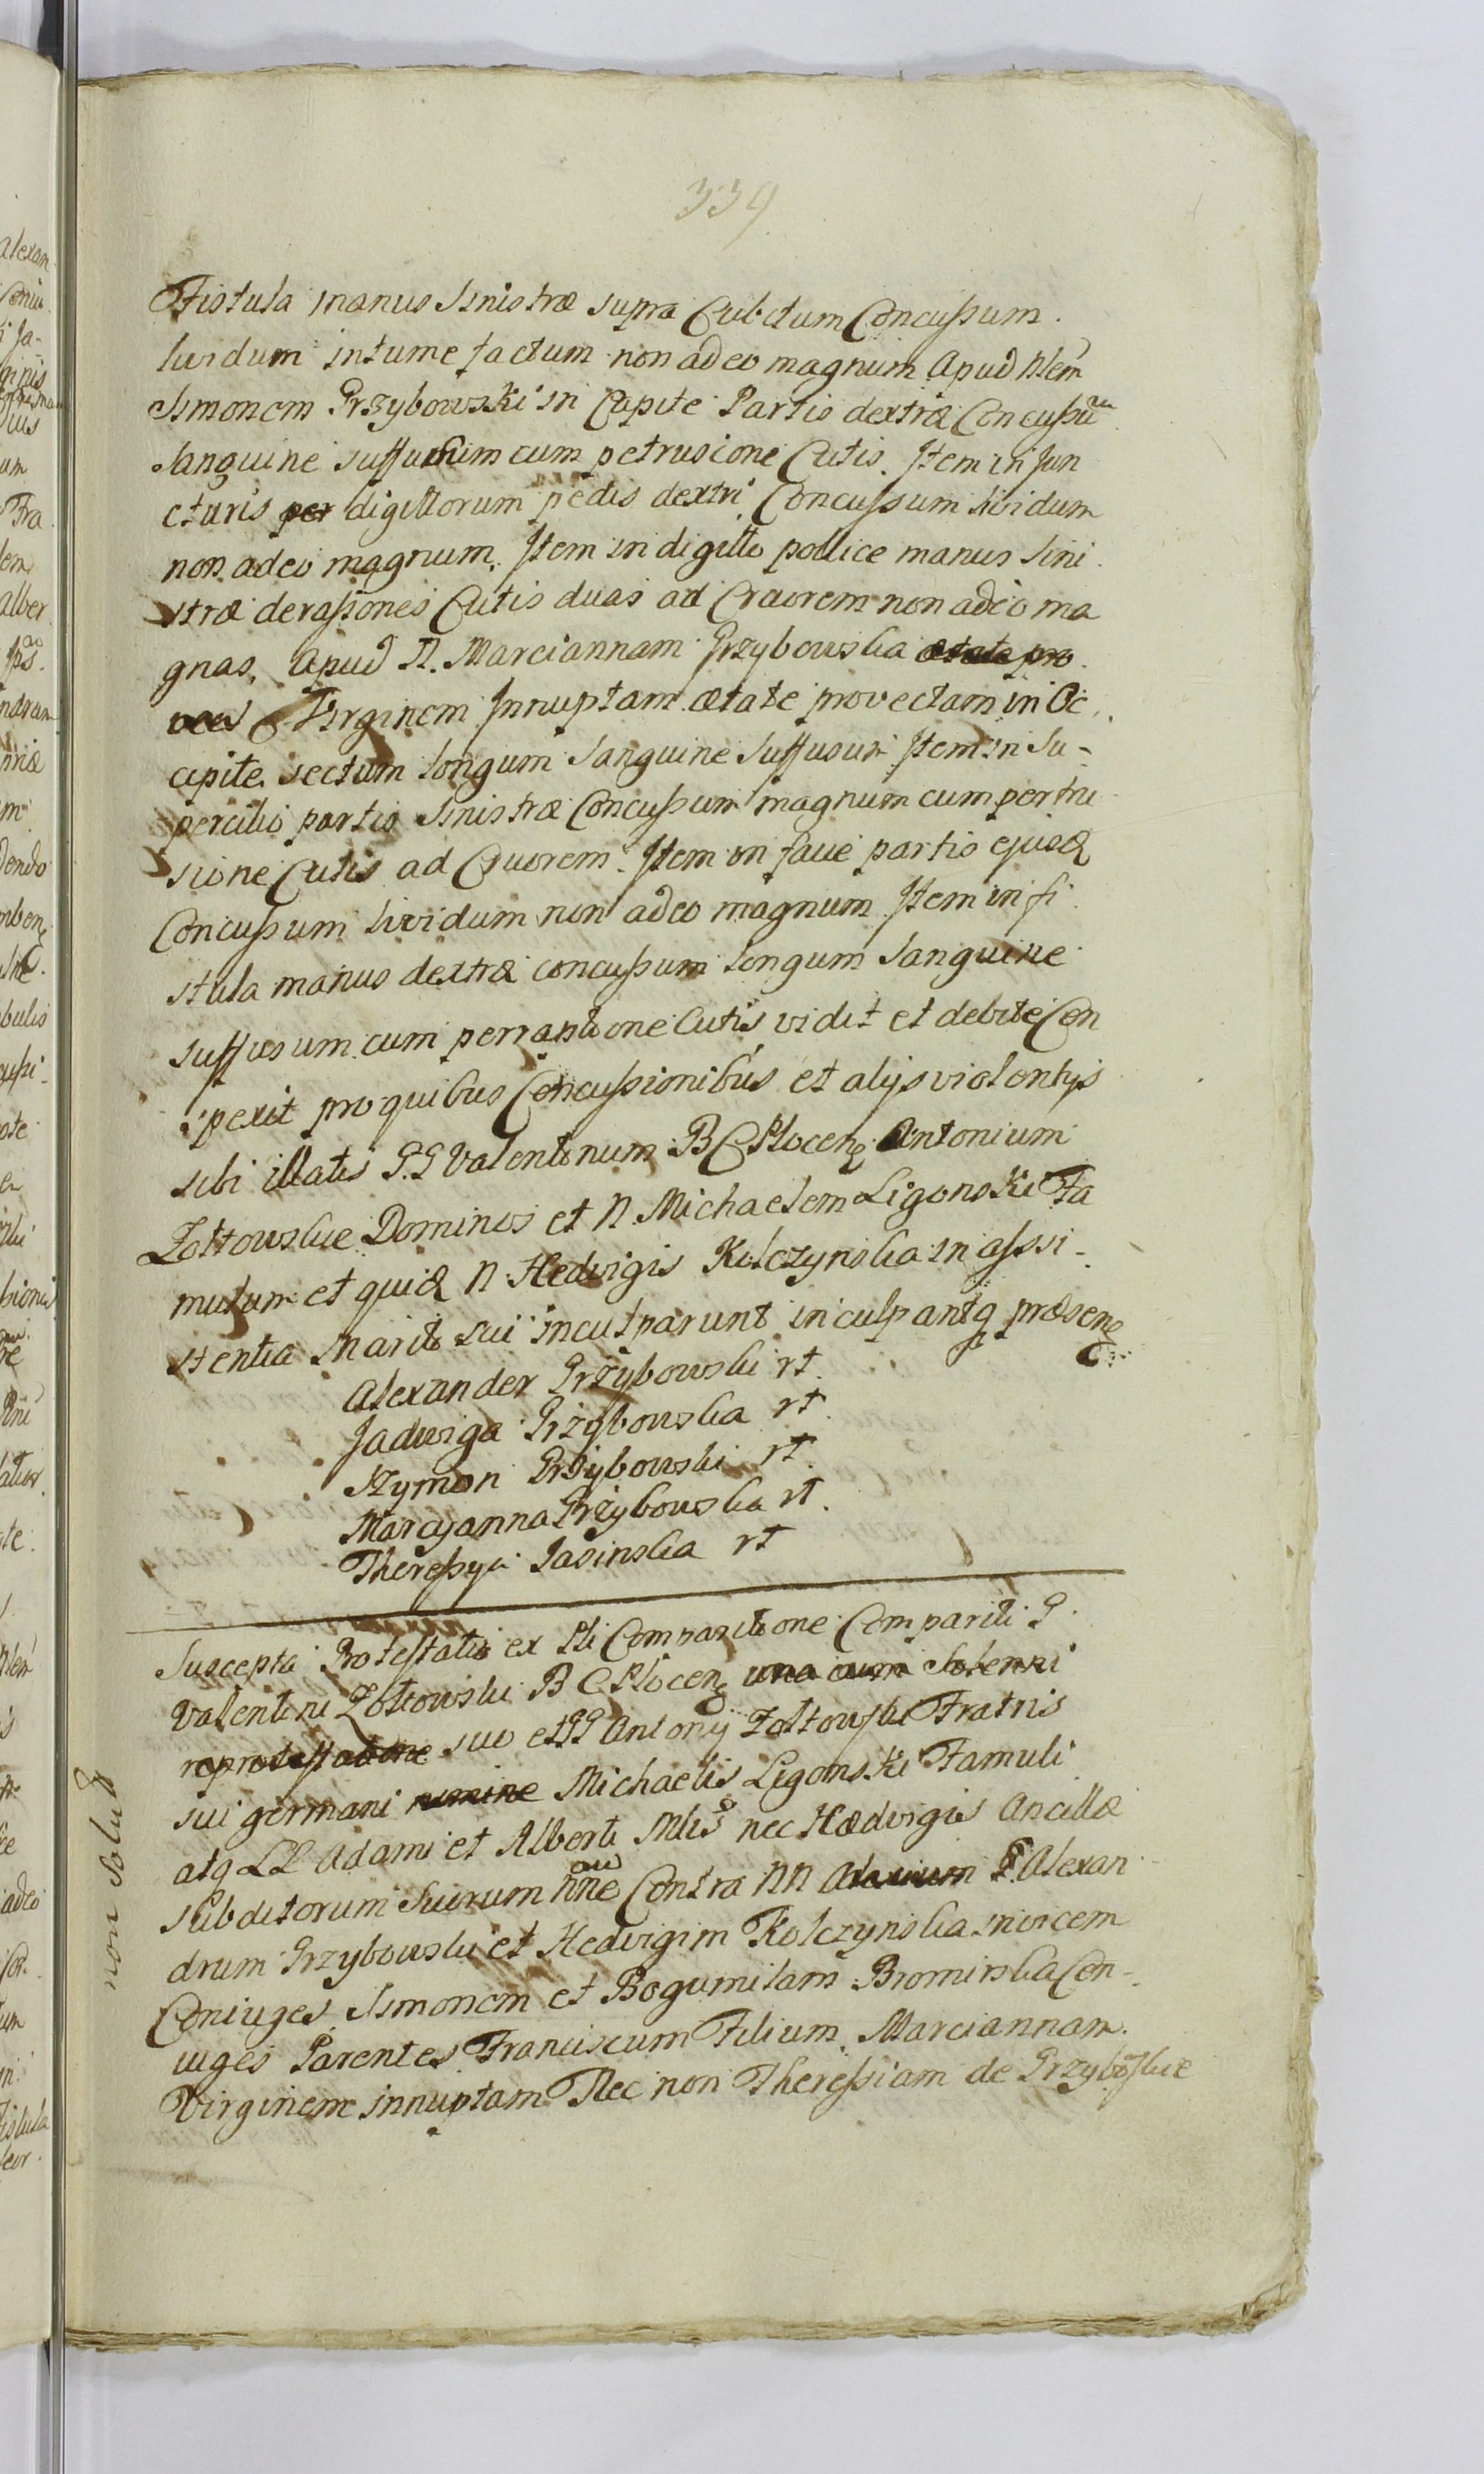 339
Fistula manus sinistræ supra Cubitum Concussum.
luridum intumefactum non adeo magnum Apud Nlem
Simonem Przybowski in Capite Partis dextræ Concussũ
Sanguine suffusum cum petrusione Cutis. Item in jun
cturis per digittorum pedis dextri Concussum lividum
non adeo magnum. Item in digitto pollice manus Sini
stræ derassiones Cutis duas ad Cruorem non adeo ma
gnas. Apud N. Marciannam Przybowska ætate pro
vec Virginem Innuptam ætate provectam in Oc
cipite sectum longum Sanguine Suffusum Item in Su-
percilio partis sinistræ Concussum magnum cum pertru
sione Cutis ad Cruorem. Item in faue partis ejusd
Concussum lividum non adeo magnum Item in fi
stula manus dextræ concussum longum Sanguine
suffusum cum perraptione Cutis vidit et debite Con
spexit pro quibus Concussionibus et alijs violentijs
sibi illatis GG Valentinum BCPlocen Antonium
Zołtowskie Dominos et N. Michaelem Ligonski Fa
mulum et quid N. Hedvigis Kolczynska in assi-
stentia mariti sui inculparunt inculpantq præsen
Alexander Przybowski rt
Jadwiga Przybowska rt
Szymon Przybowski rt
Marcyanna Przybowska rt
Theressya Jasinska rt
Suscepta Protestatio ex Pti Comparitione Compariti G
Valentini Zołtowski BCPlocen una cum Solenni
reprotestatione suo et GG Antonij Zołtowski Fratris
sui germani nomine Michaelis Ligonski Famuli
atq LL Adami et Alberti Mlis nec Hædvigis Ancillæ
Subditorum Suorum nõne Contra NN G. Alexan
drum Przybowski et Hedvigim Kolczynska invicem
Coniuges Simonem et Bogumilam Bromirska Con-
iuges Parentes Franciscum Filium Marciannam
Virginem innuptam Nec non Theressiam de Przybowskie
non solud